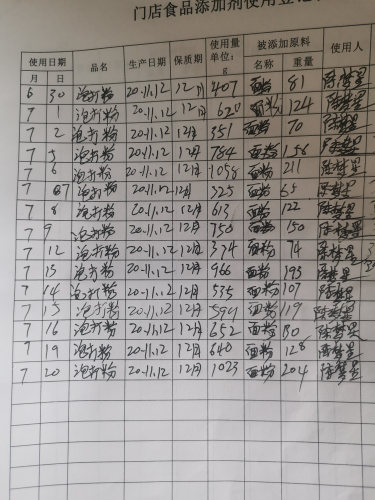 门店食品添加剂使用登记
使用日期 品名 生产日期 保质期 使用量单位：g 被添加原料 使用人
月 日 名称 重量
6 30 泡打粉 20-11.12 12月 407 面粉 81 陈梦星
7 1 泡打粉 20-11.12 12月 620 面粉 124 陈梦星
7 2 泡打粉 20-11.12 12月 351 面粉 70 陈梦星
7 5 泡打粉 20-11.12 12月 784 面粉 156 陈梦星
7 6 泡打粉 20-11.12 12月 1058 面粉 211 陈梦星
7 7 泡打粉 20-11.12 12月 325 面粉 65 陈梦星
7 8 泡打粉 20-11.12 12月 613 面粉 122 陈梦星
7 9 泡打粉 20-11.12 12月 750 面粉 150 陈梦星
7 12 泡打粉 20-11.12 12月 374 面粉 74 陈梦星
7 13 泡打粉 20-11.12 12月 966 面粉 193 陈梦星
7 14 泡打粉 20-11.12 12月 535 面粉 107 陈梦星
7 15 泡打粉 20-11.12 12月 594 面粉 119 陈梦星
7 16 泡打粉 20-11.12 12月 652 面粉 130 陈梦星
7 19 泡打粉 20-11.12 12月 640 面粉 128 陈梦星
7 20 泡打粉 20-11.12 12月 1023 面粉 204 陈梦星